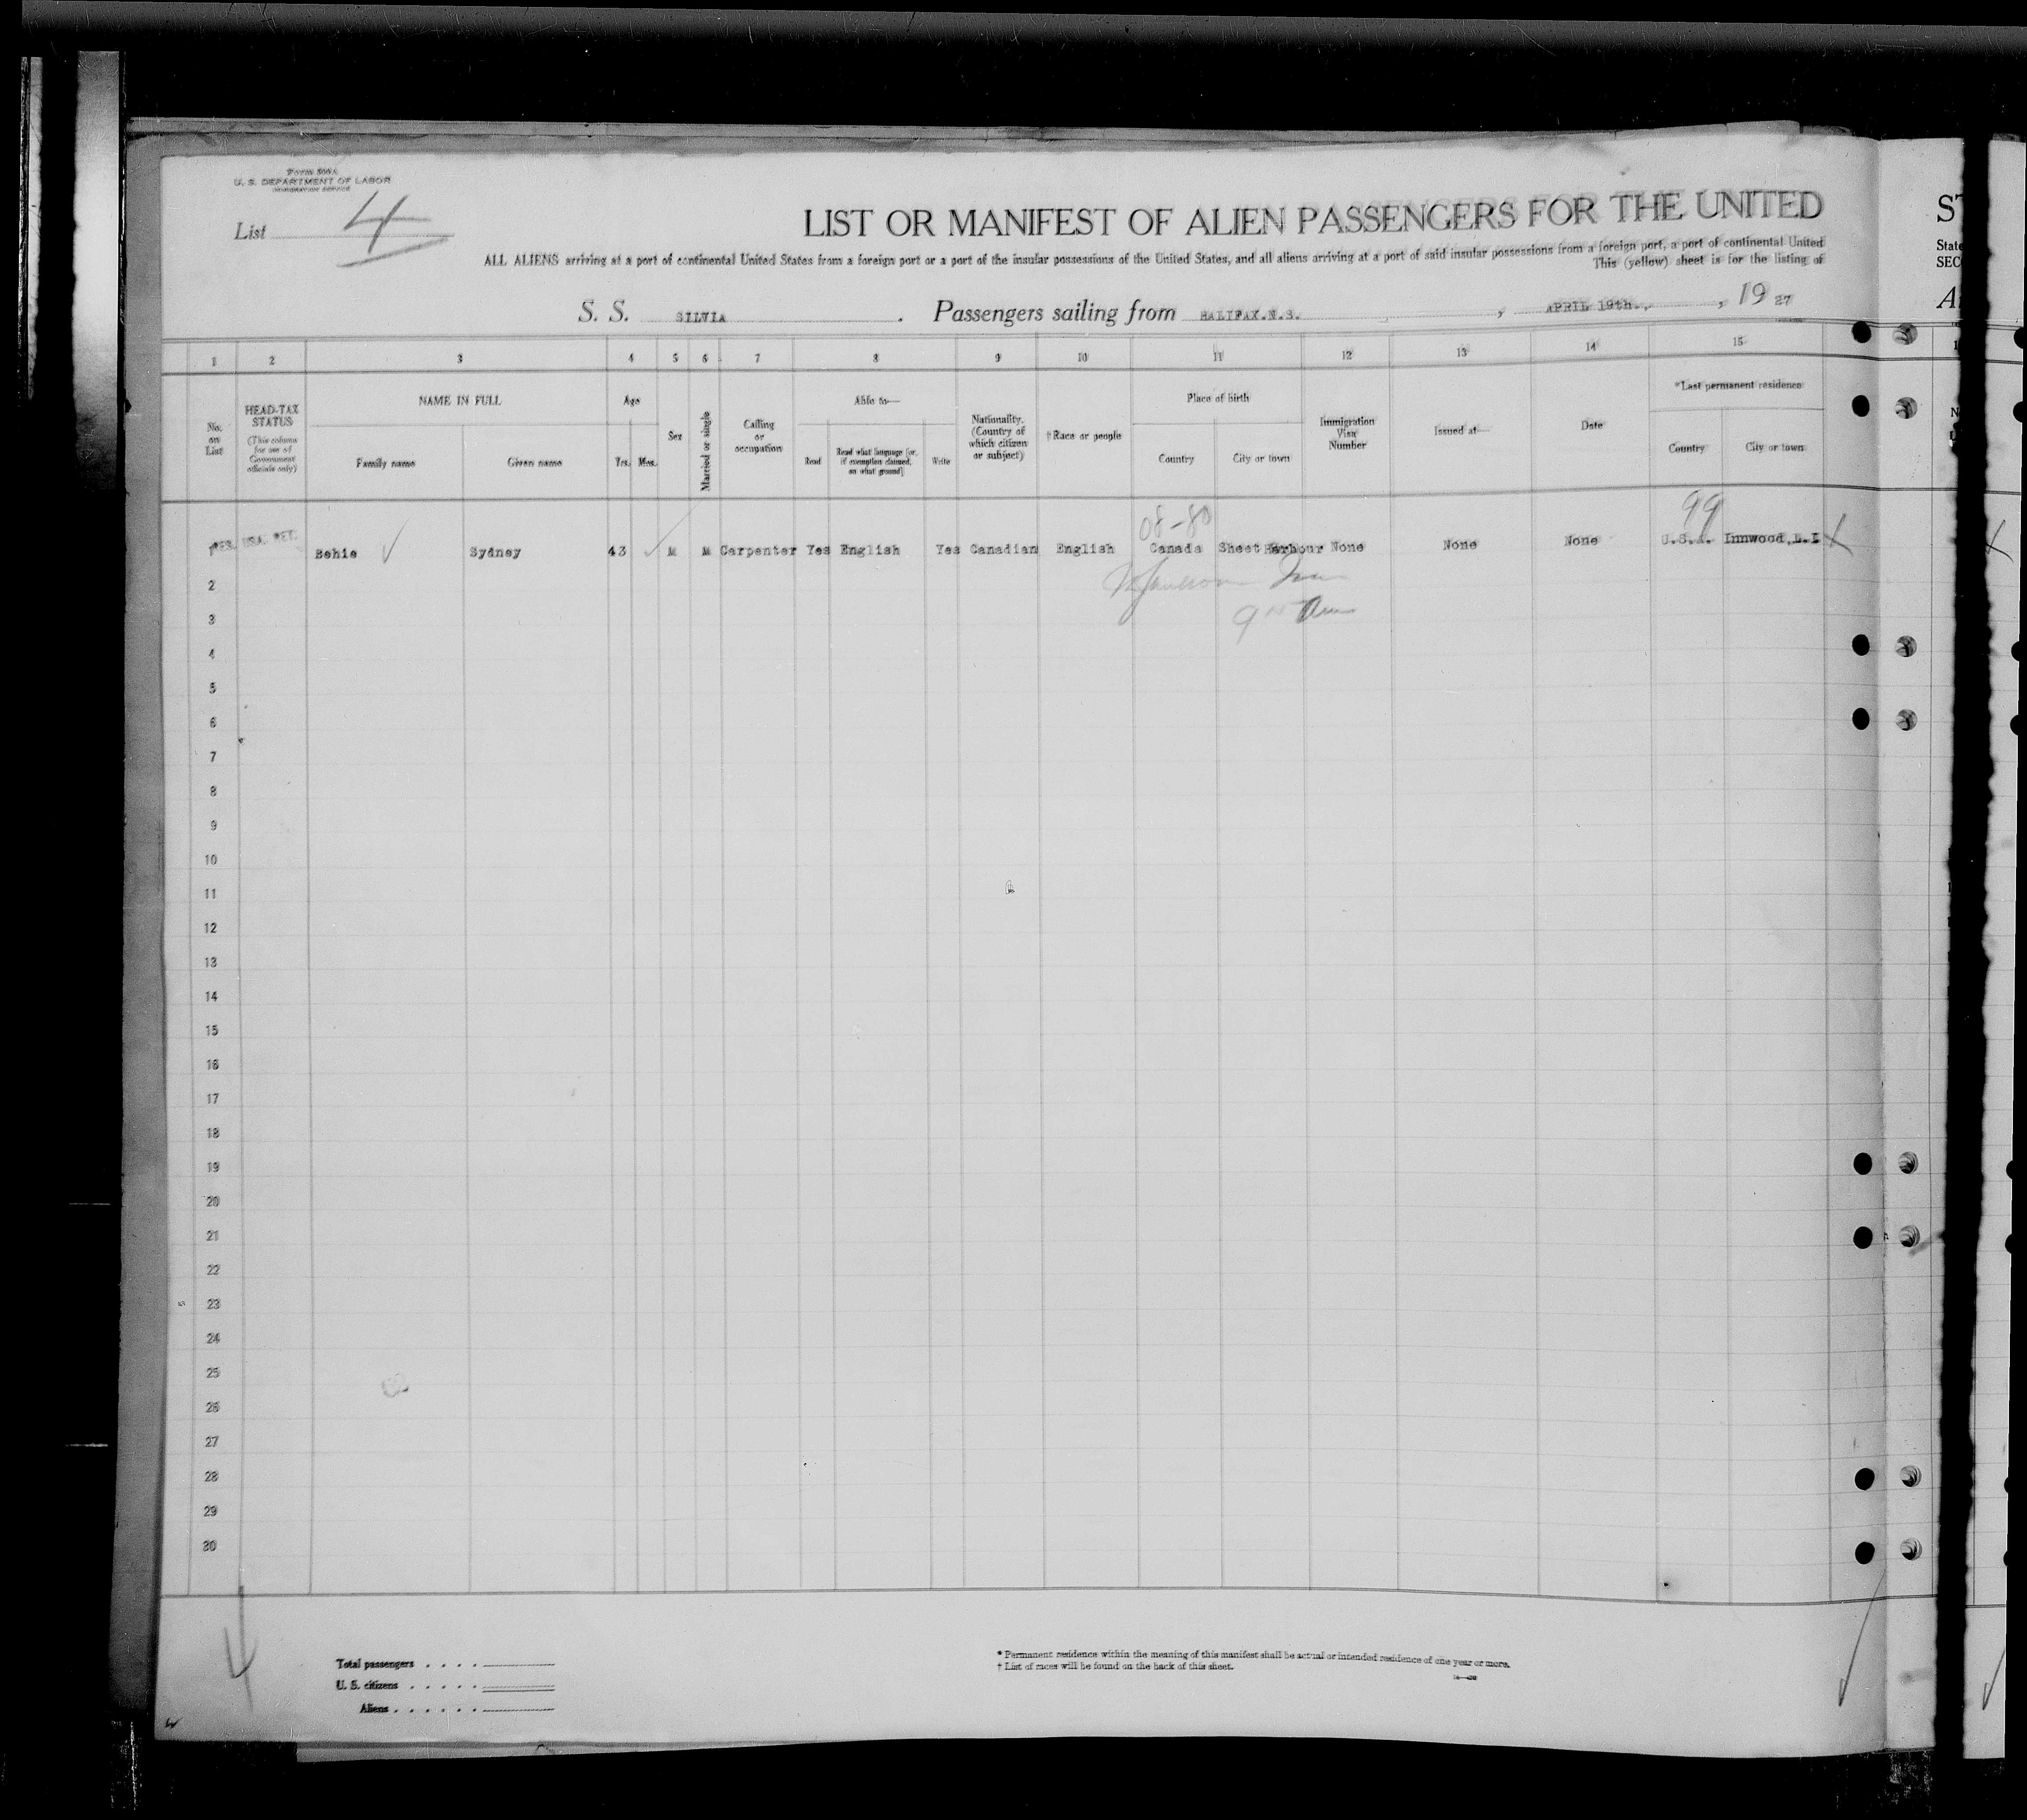 Form 500 A
U. S. DEPARTMENT OF LABOR
IMMIGRATION SERVICE
List 4
LIST OR MANIFEST OF ALIEN PASSENGERS FOR THE UNITED
ALL ALIENS arriving at a port of continental United States from a foreign port or a port of the insular possessions of the United States, and all aliens arriving at a port of said insular possessions from a foreign port, a port of continental United
This (yellow) sheet is for the listing of
S. S. SILVIA . Passengers sailing from HALIFAX.N.S. , APRIL 19th., , 19 27
1 2 3 4 5 6 7 8 9 10 11 12 13 14 15
No. on List
HEAD-TAX STATUS
(This column for use of Government officials only)
NAME IN FULL
Family name
Given name
Age
Yrs. Mos.
Sex
Married or single
Calling or occupation
Able to—
Read
Read what language [or, if exemption claimed, on what ground]
Write
Nationality. (Country of which citizen or subject)
†Race or people
Place of birth
Country
City or town
Immigration Visa Number
Issued at—
Date
*Last permanent residence
Country
City or town
08-80
99
Behie Sydney 43 M M Carpenter Yes English Yes Canadian English Canada Sheet Harbour None None None U.S.A. Innwood,L.I
2
3
4
5
6
7
8
9
10
11
12
13
14
15
16
17
18
19
20
21
22
23
24
25
26
27
28
29
30
Total passengers
U. S. citizens
Aliens
* Permanent residence within the meaning of this manifest shall be actual or intended residence of one year or more.
† List of races will be found on the back of this sheet.
ST
State
SEC